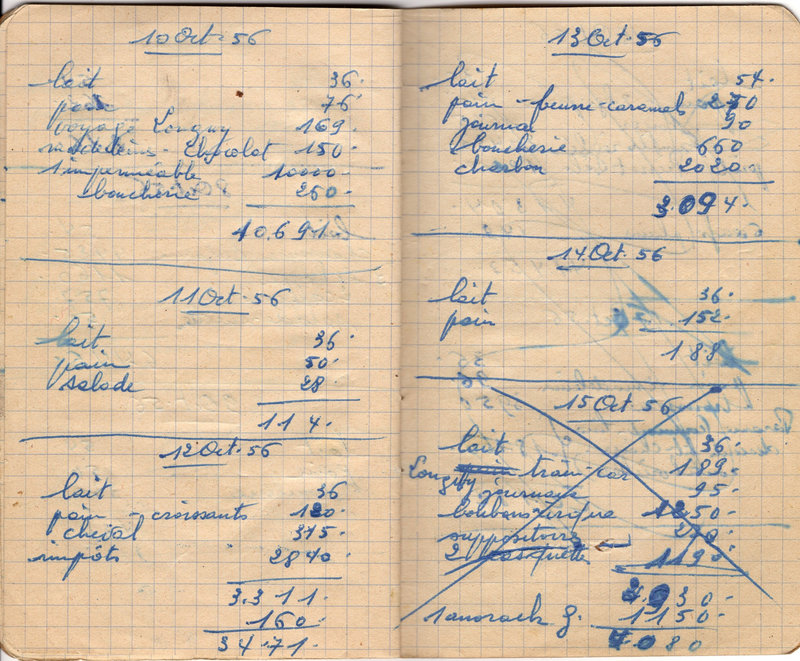 10 Oct - 56
lait 36.
pain 76.
voyage Longuy 169.
- Chocolat 150.
1 imperméable 10000.
boucherie 260.
10.691.
11 Oct - 56
lait 36.
pain 50.
salade 28.
114.
12 Oct - 56
lait 36
pain - croissants 120.
cheval 315.
impôts 2840.
3.311.
160.
3471.
13 Oct - 56
lait 54.
pain - beurre - caramels 270
journal 90
boucherie 660
charbon 2020.
3.094.
14 Oct - 56
lait 36.
pain 152.
188.
15 Oct 56
lait 36.
Longuy train-car 189.
journaux 95.
bonbons 1250.
suppositoire
2 casquettes 1190.
2.930.
1 anorack g. 1150.
4.080